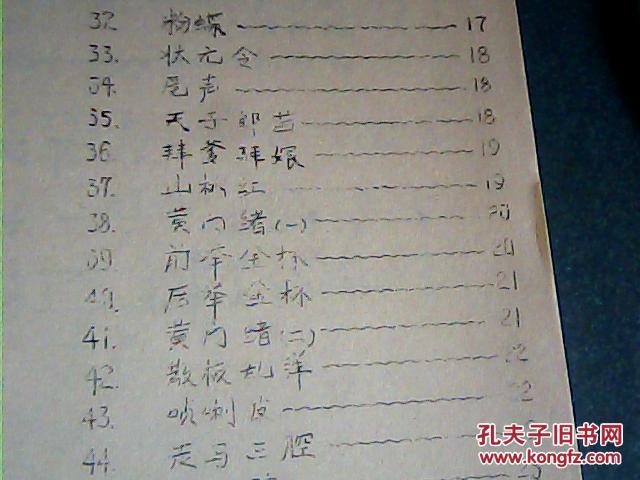 32. 粉蝶 17
33. 状元令 18
34. 尾声 18
35. 天子郎 18
36. 拜爹拜娘 19
37. 山桃红 19
38. 黄门绪(一) 20
39. 前举金杯 20
40. 后举金杯 21
41. 黄门绪(二) 21
42. 散板 22
43. 唢喇皮 22
44. 走马三腔
孔夫子旧书网
www.kongfz.com